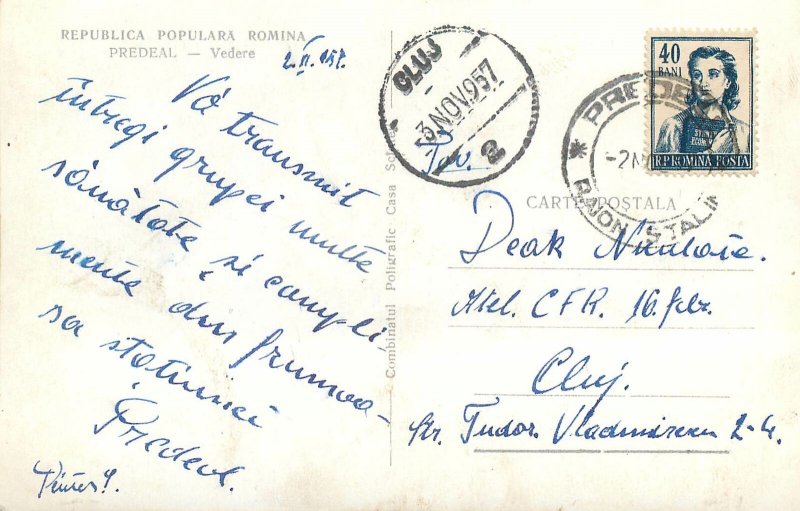 REPUBLICA POPULARA ROMINA
PREDEAL — Vedere
2.XI.957.
Vă transmit
întregi grupei multe
sănătate și compli-
mente din frumoa-
sa stațiunei
Predeal.
Combinatul Poligrafic Casa
CLUJ
-3 NOV. 957
2
40
BANI
R.P. ROMINA POSTA
PREDEAL
-2 N
STALIN
CARTE POSTALA
Deak Nicolaie.
Atel. CFR. 16 febr.
Cluj.
Str. Tudor Vladimirescu 2-4.